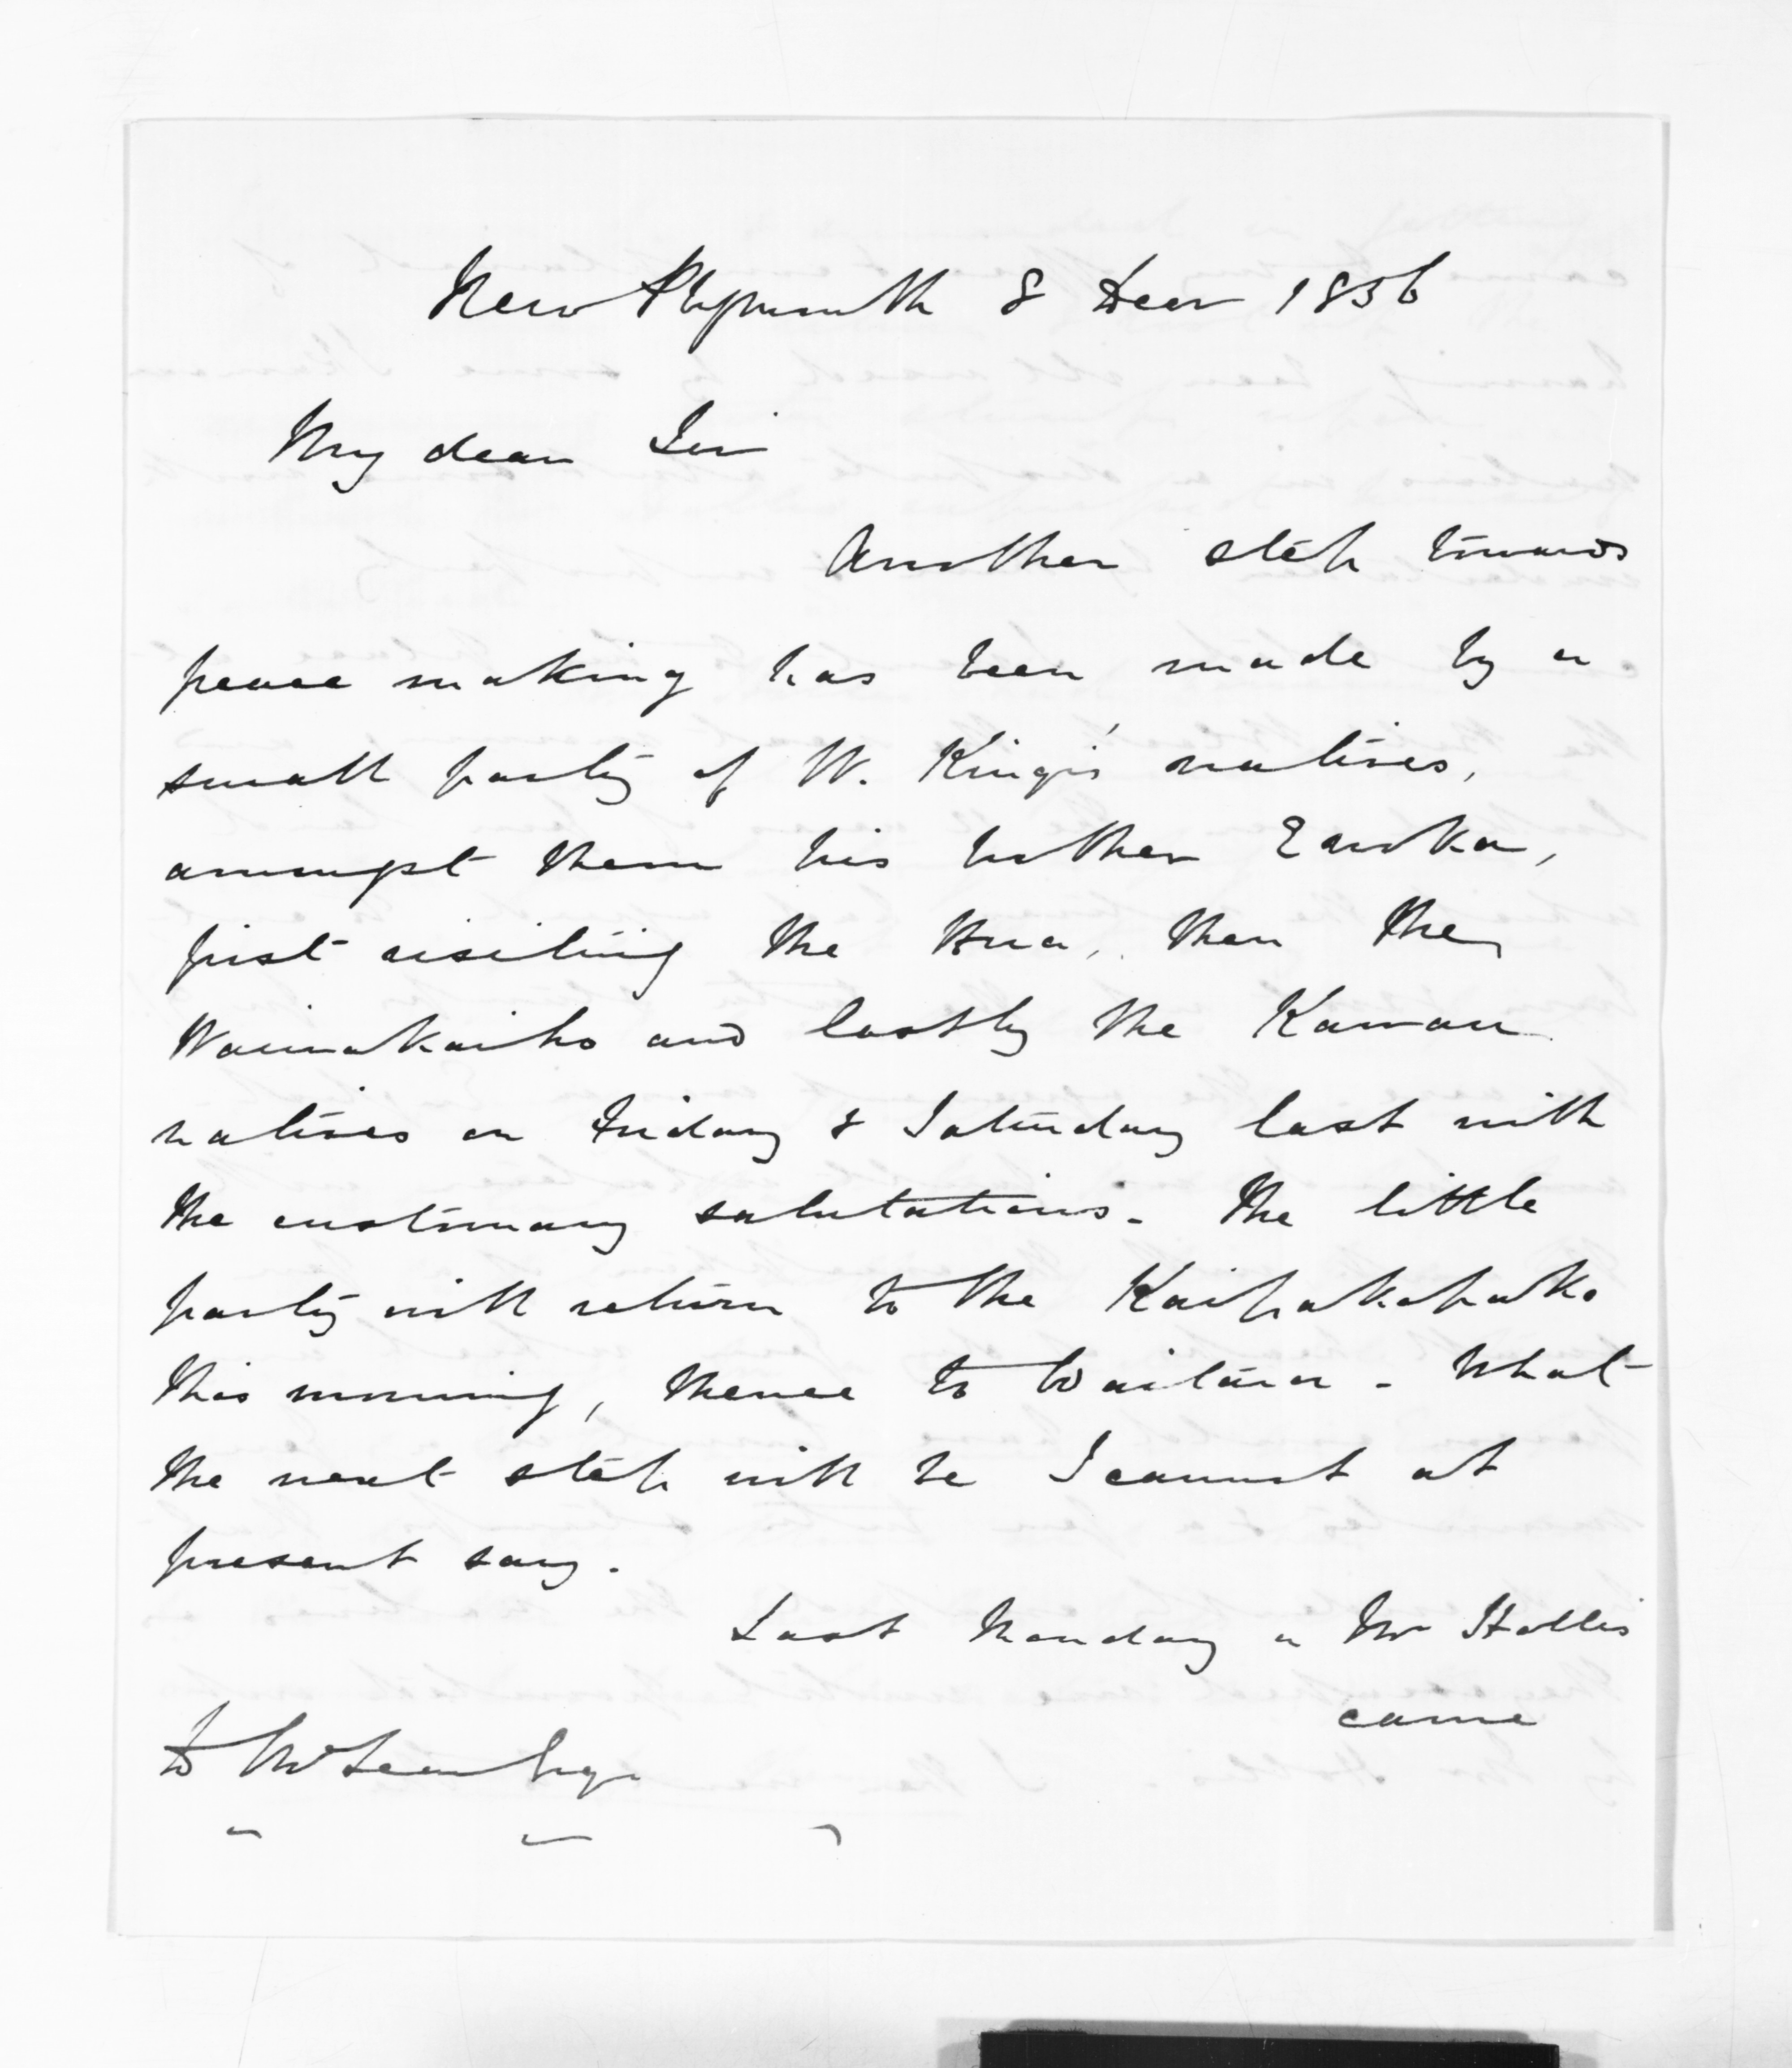 New Plymouth 8 Decr 1856
My dear Sir
Another step towards
peace making has been made by a
small party of W. King's natives,
amongst them his brother Enoka,
first visiting the Hua, then the
Waiwakaiho and lastly the Kawau
natives on Friday & Saturday last with
the customary salutations. The little
party will return to the Kaipakopako
this morning, thence to Waitara - What
the next step will be I cannot at
present say.
Last Monday a Mr Hollis
came
To McLean Esqr